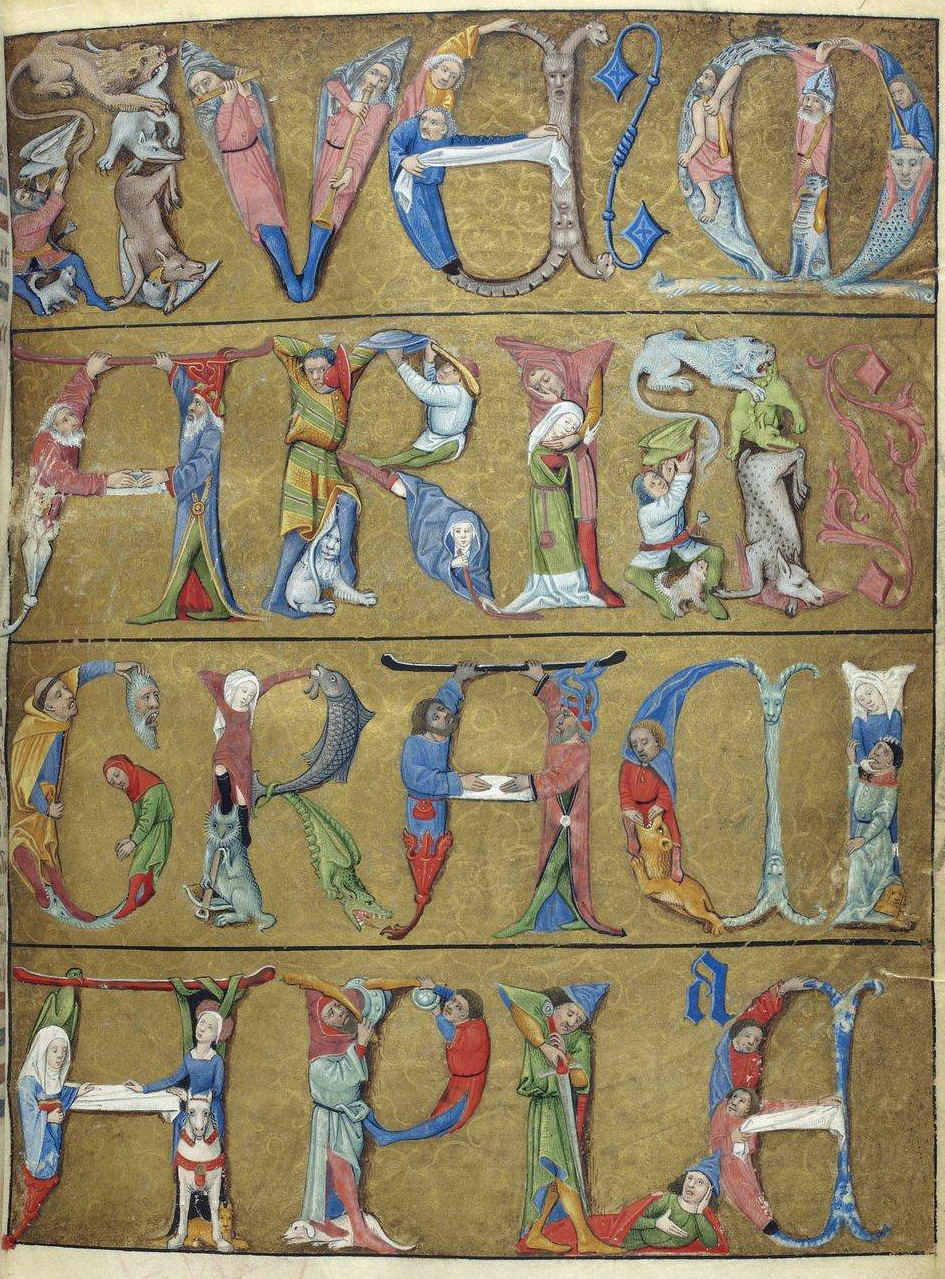 AVE:M
ARIA:
GRACI
APLEa